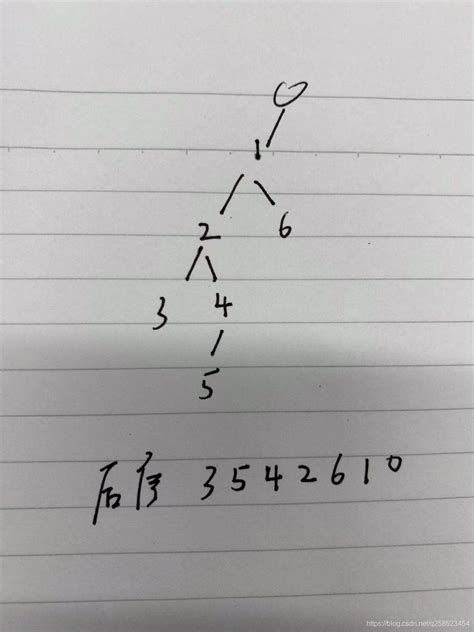 0
1
2 6
3 4
5
后序 3542610
https://blog.csdn.net/q258523454